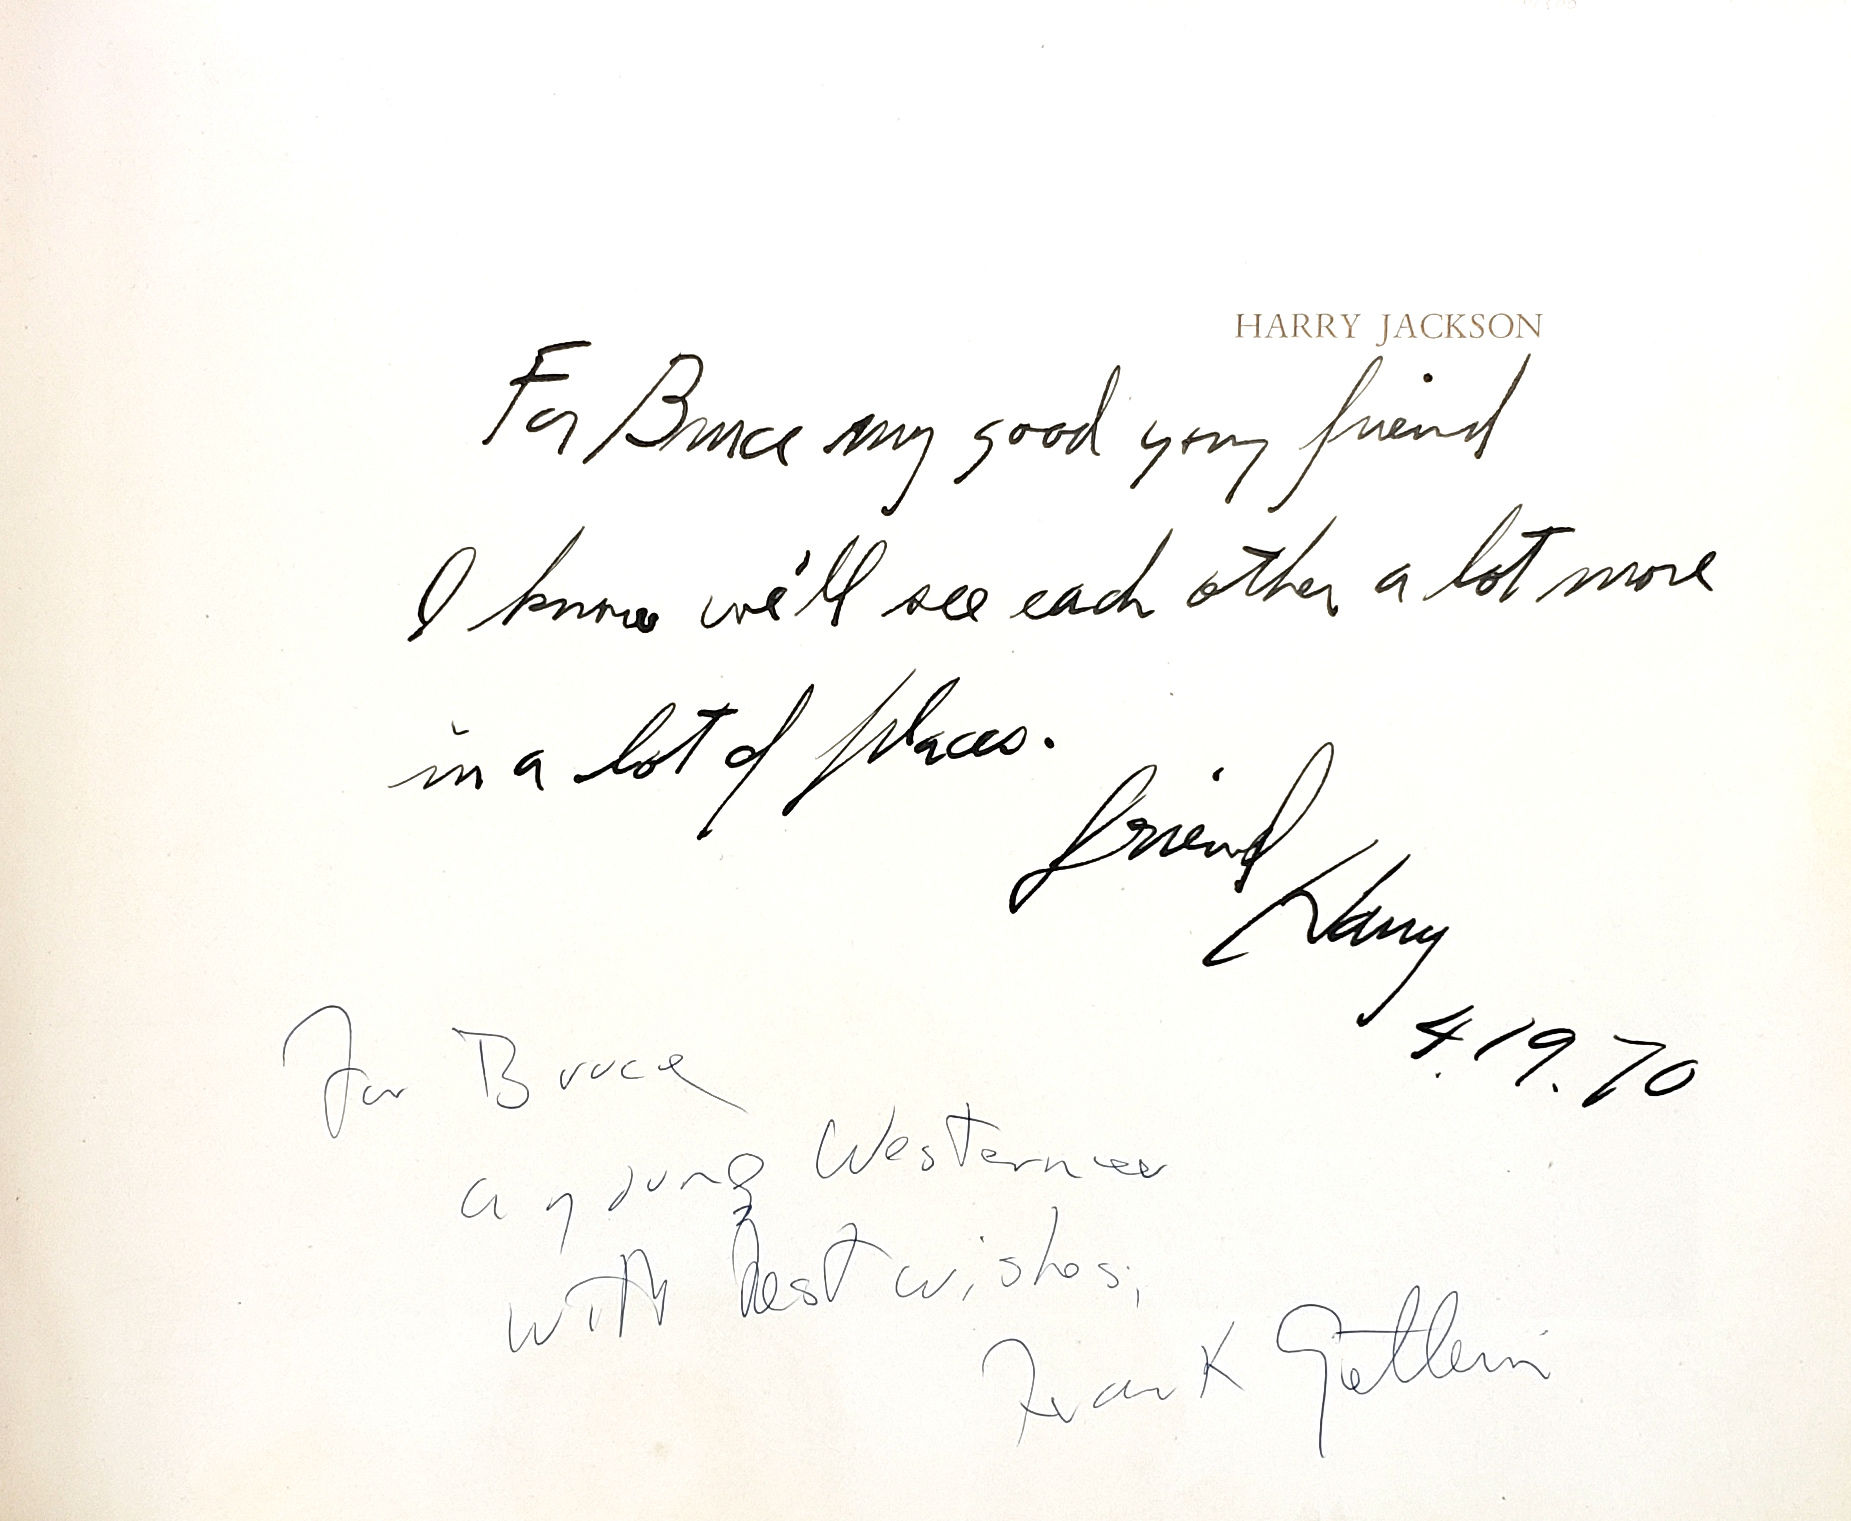 HARRY JACKSON
For Bruce my good young friend
I know we'll see each other a lot more
in a lot of places.
friend
Harry
4.19.70
For Bruce
a young Westerner
with best wishes,
Frank Getlein